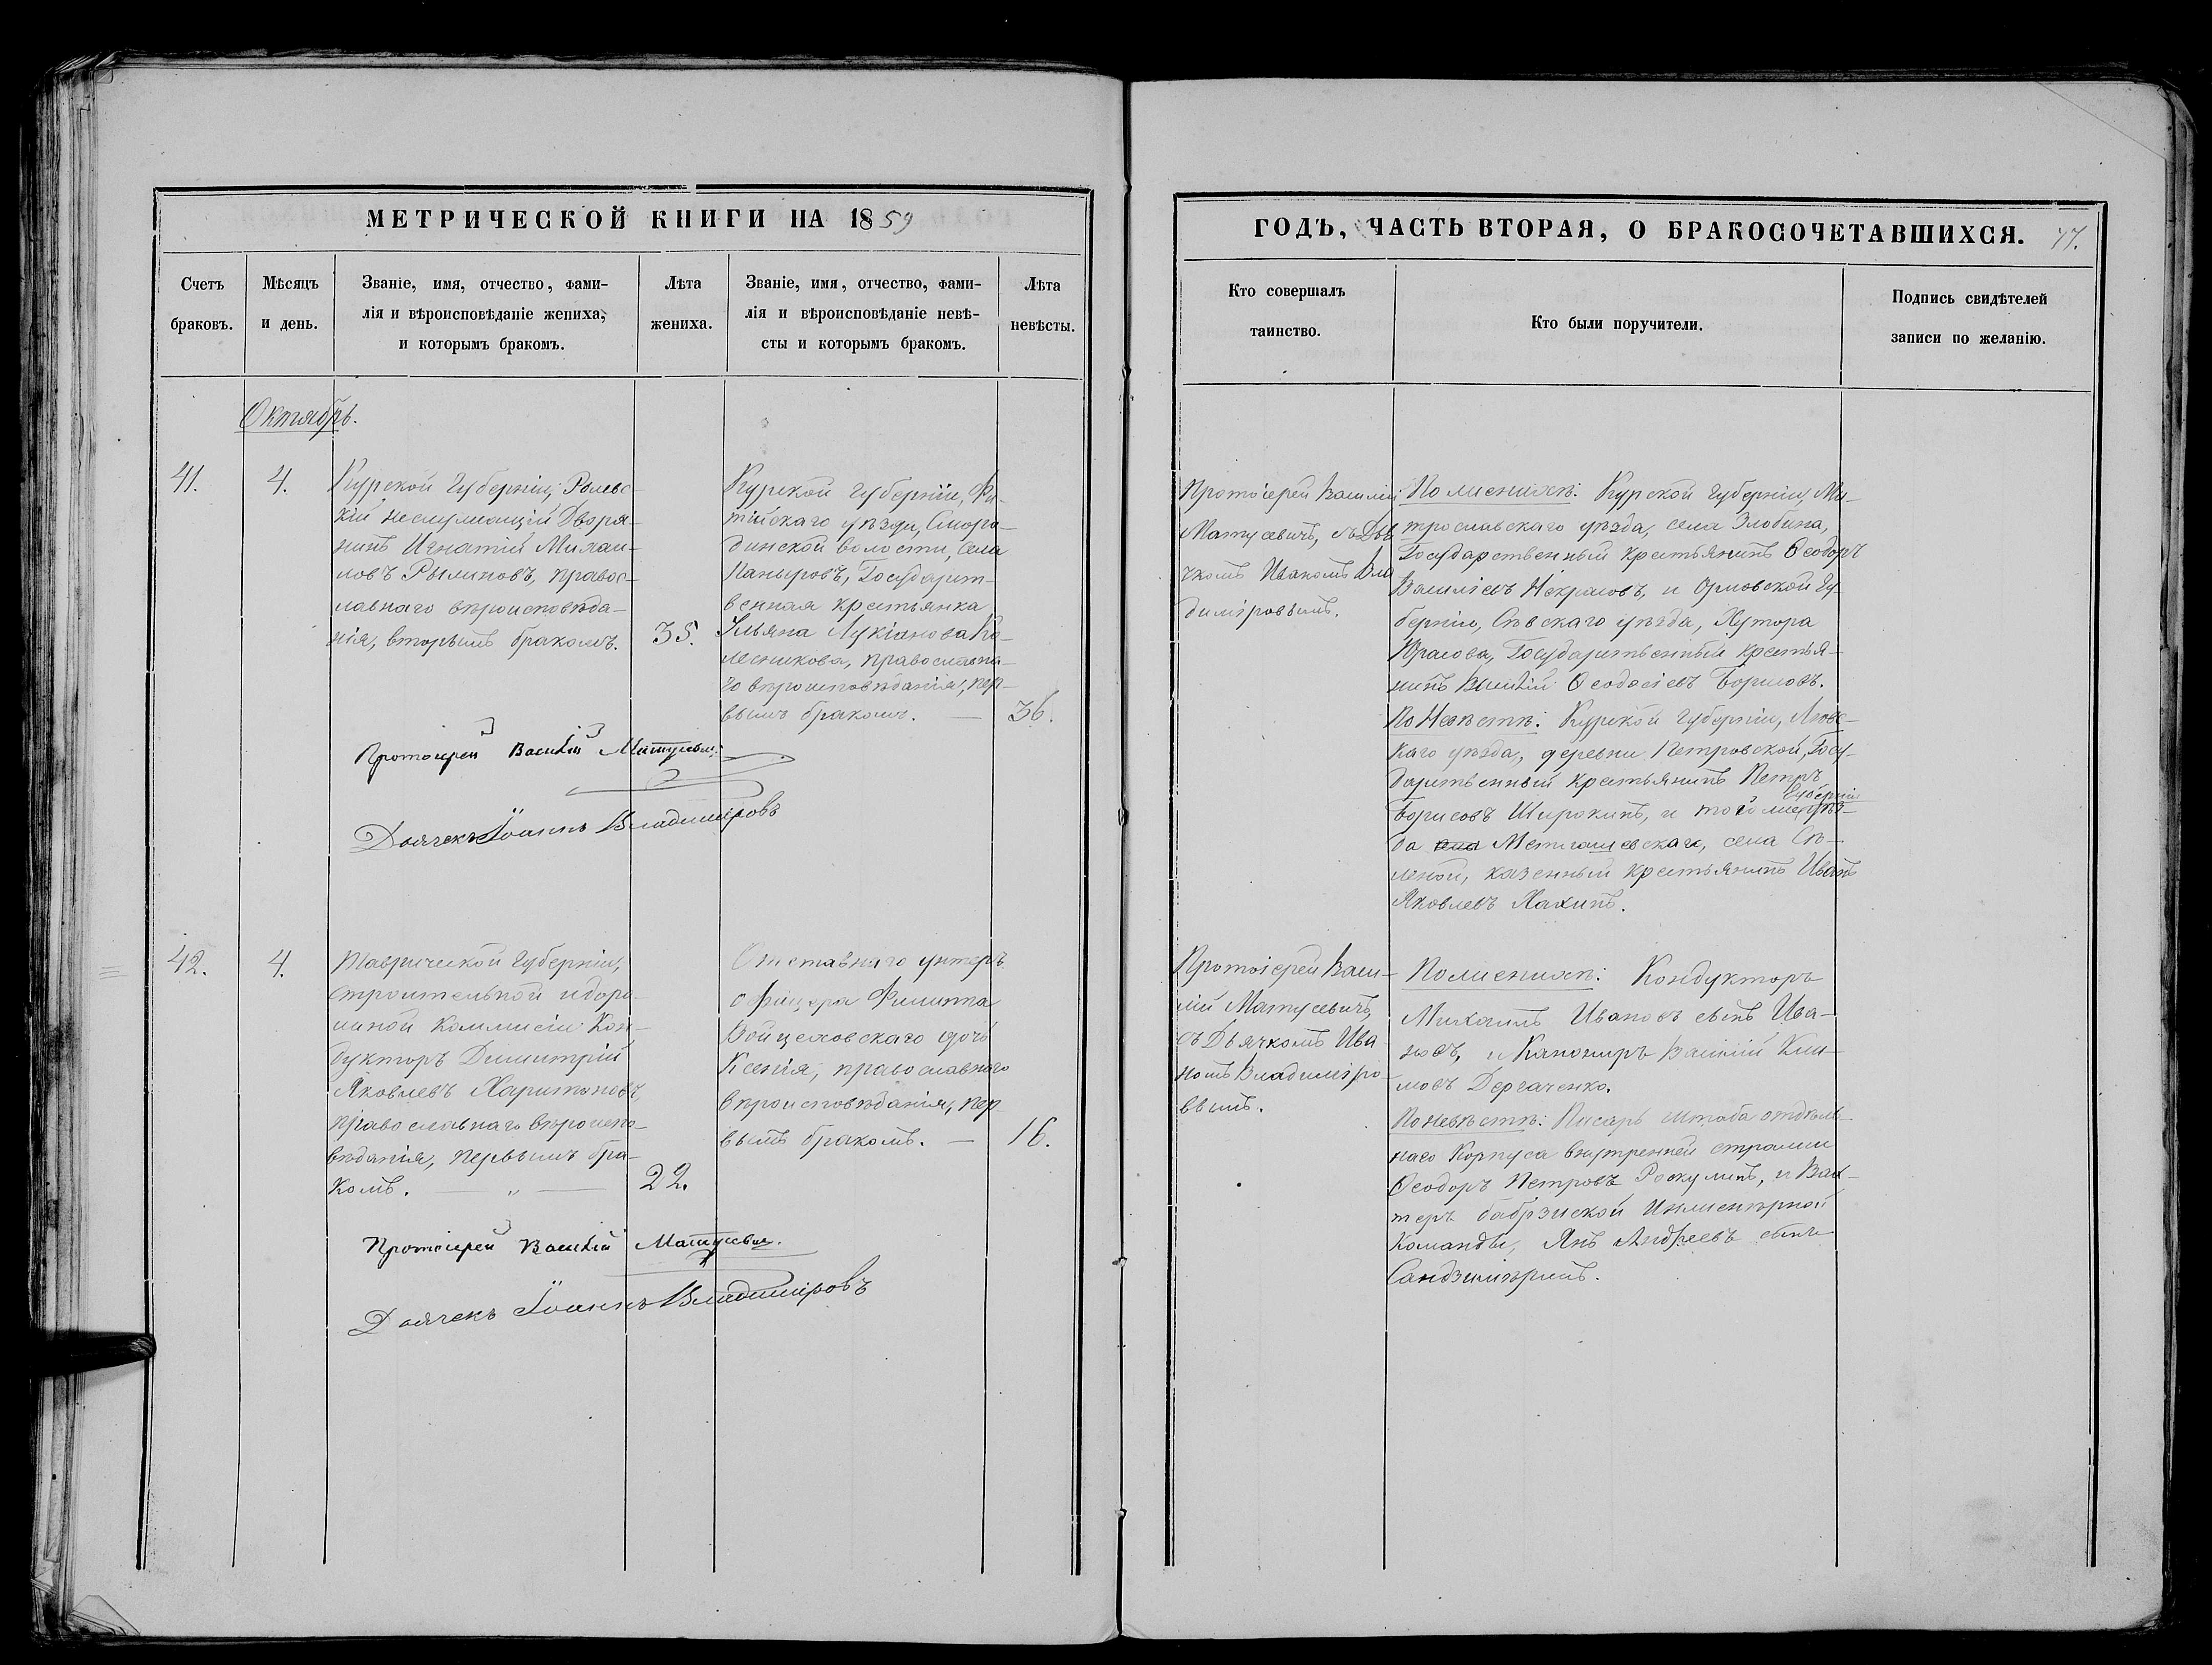 МЕТРИЧЕСКОЙ КНИГИ НА 1859
Счетъ
браковъ.
Мѣсяцъ
и день.
Званіе, имя, отчество, фами-
лія и вѣроисповѣданіе жениха,
и которымъ бракомъ.
Лѣта
жениха.
Званіе, имя, отчество, фами-
лія и вѣроисповѣданіе невѣ-
сты и которымъ бракомъ.
Лѣта
невѣсты.
Октябрь.
41.
4.
Курской Губерніи,
кій неслужащій Дворя-
нинъ Игнатій Михаи-
ловъ Рылиновъ, правос-
лавнаго вѣроисповѣда-
нія, вторымъ бракомъ.
35.
Курской Губерніи,
уѣзда,
динской волости, села
Государст-
венная крестьянка
Ульяна Лукіанова Ко-
лесникова, православна-
го вѣроисповѣданія, пер-
вымъ бракомъ. —
36.
Протоіерей Василій Матусевич
Дьячекъ Іоаннъ Владиміровъ
42.
4.
Таврической Губерніи,
строительной и доро-
жной Коммисіи Кон-
дукторъ Димитрій
Яковлевъ Харитоновъ,
православнаго вѣроиспо-
вѣданія, первымъ бра-
комъ. — „ —
22.
Отставнаго унтеръ
офицера Филиппа
Войцеховскаго дочь
Ксенія, православнаго
вѣроисповѣданія, пер-
вымъ бракомъ. —
16.
Протоіерей Василій Матусевич.
Дьячекъ Іоаннъ Владиміровъ
ГОДЪ, ЧАСТЬ ВТОРАЯ, О БРАКОСОЧЕТАВШИХСЯ.
Кто совершалъ
таинство.
Кто были поручители.
Подпись свидѣтелей
записи по желанію.
Протоіерей Василій
Матусевичъ, съ Дья
чкомъ Иваномъ Вла
диміровымъ.
По женихѣ: Курской Губерніи, Ми-
уѣзда, села Злобина,
Государственный крестьянинъ Ѳеодоръ
Василіевъ Некрасовъ, и Орловской Гу-
берніи, Сѣвскаго уѣзда, Хутора
Юрасова, Государственный крестья-
нинъ Василій Ѳеодосіевъ Борисовъ.
По Невѣстѣ: Курской Губерніи, Льговс-
каго уѣзда, деревни Петровской, Госу-
дарственный крестьянинъ Петръ
Губерніи
Борисовъ Широкинъ, и той же уѣз-
да села
казенный крестьянинъ Иванъ
Яковлевъ Хахинъ.
Протоіерей Васи-
лій Матусевичъ,
съ Дьячкомъ Ива
номъ Владиміро-
вымъ.
По женихѣ: Кондукторъ
Михаилъ Ивановъ сынъ Ива-
новъ, и Канониръ Василій Кли-
мовъ Дергаченко.
По невѣстѣ: Писарь Штаба отдѣль-
наго Корпуса внутренней стражи
Ѳеодоръ Петровъ и Вах-
теръ Инженерной
Команды, Янъ Андреевъ сынъ